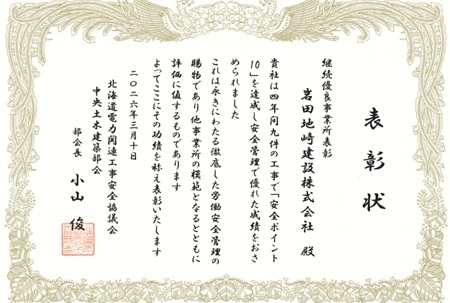 表彰状
継続優良事業所表彰
岩田地崎建設株式会社 殿
貴社は四年間九件の工事で「安全ポイント
10」を達成し安全管理で優れた成績をおさ
められました
これは永きにわたる徹底した労働安全管理の
賜物であり他事業所の模範となるとともに
評価に値するものであります
よってここにその功績を称え表彰いたします
二〇二六年三月十日
北海道電力関連工事安全協議会
中央土木建築部会
部会長 小山 俊